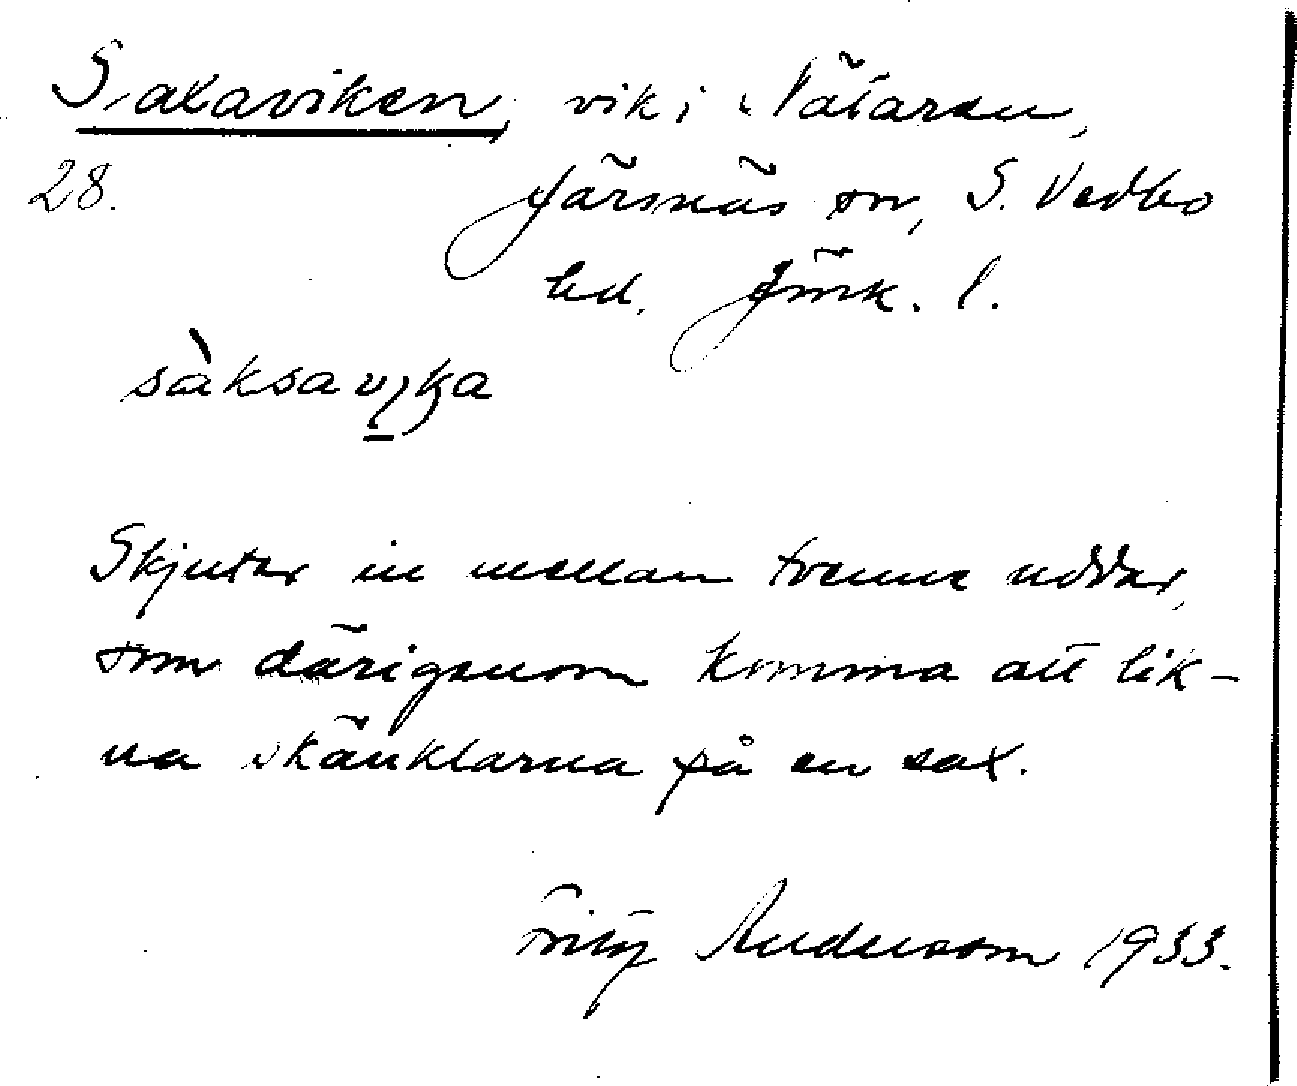 Saxaviken, vik i Nätaren,
28. Järsnäs sn, S. Vedbo
hd. Jönk. l.
sàksavɩka
Skjuter in mellan tvenne uddar,
som därigenom komma att lik-
na skänklarna på en sax.
Fritz Andersson 1933.